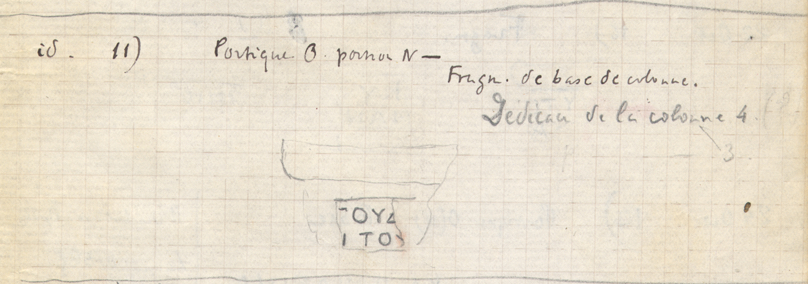 id. 11) Portique O. portion N —
Fragm. de base de colonne.
Dédicace de la colonne 4
3
ΤΟΥΔ
ΙΤΟΥ